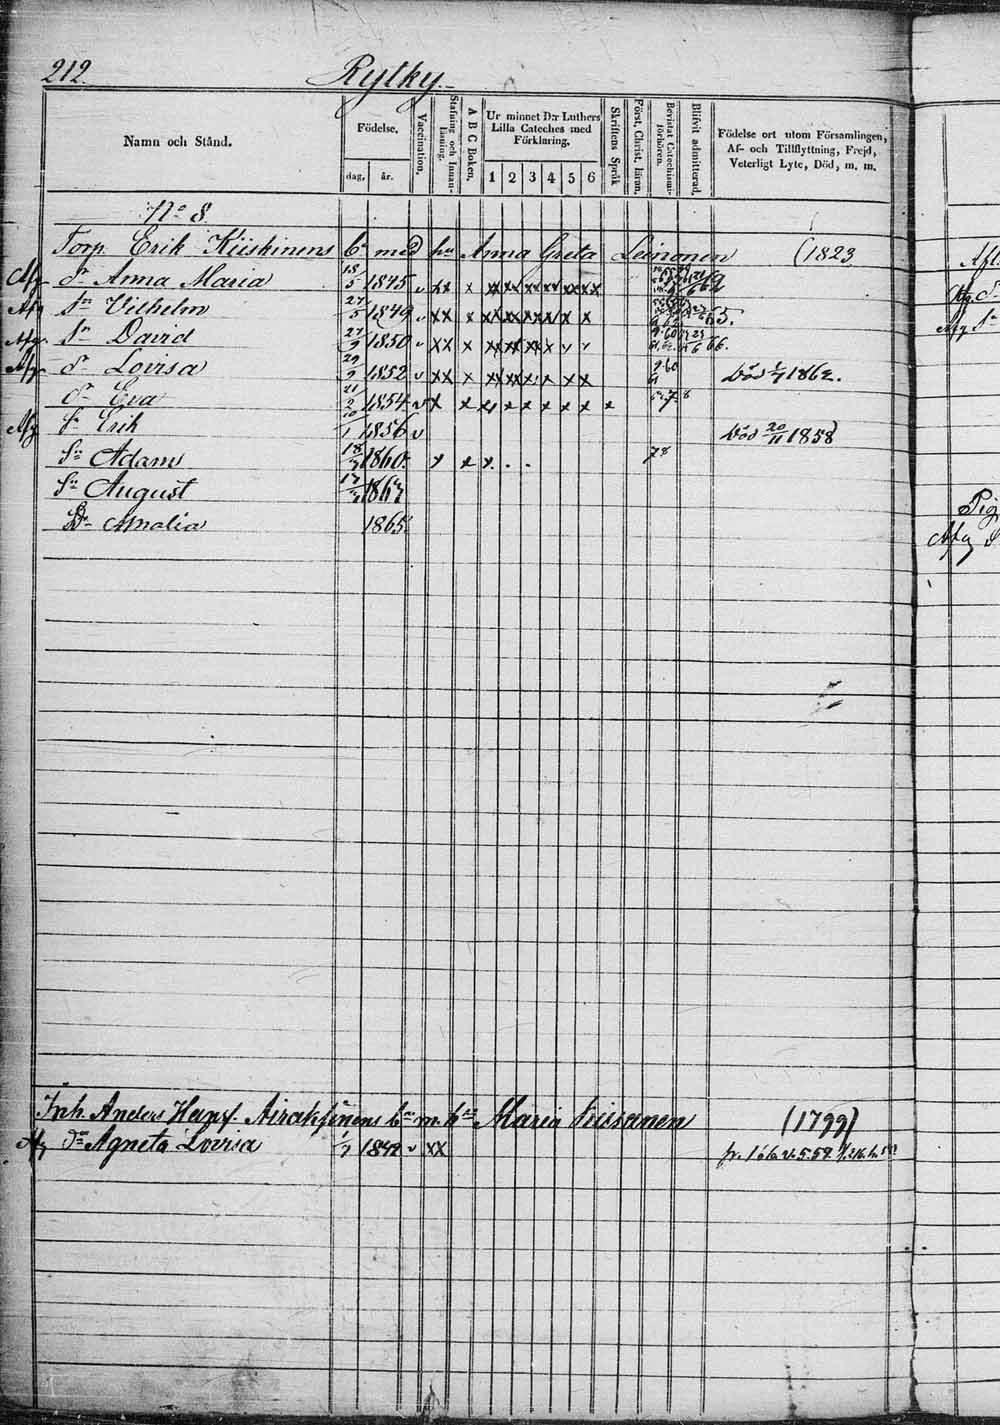 212.
Rytky.
Namn och Stånd.
Födelse,
dag, år.
Vaccination,
Stafning och Innan-läsning.
A B C Boken,
Ur minnet D:r Luthers
Lilla Cateches med
Förklaring,
1 2 3 4 5 6
Skriftens Språk
Först. Christ. läran,
Bevistat Catechismi-förhören.
Blifvit admitterad,
Födelse ort utom Församlingen,
Af- och Tillflyttning, Frejd,
Veterligt Lyte, Död, m. m.
No 8.
Torp. Erik Kiiskinens bn med hu Anna Greta Leinonen (1823
Afg dr Anna Maria 18/5 1845 v xx x
Afg Sn Vilhelm 27/5 1849 v xx x 65.
Afg. Sn David 1850 v xx x 66.
Afg dr Lovisa 29/9 1852 v xx x död 1/7 1862.
dr Eva 21/2 1854 v x x x x x x x x x
Afg Sn Erik 10/1 1856 v död 20/11 1858
Sn Adam 1860. x x x . . 78
Sn August 186
Dr Amalia 1865.
Inh. Anders Hansf. Airaksinens bn m. hu Maria Kiisanen (1799)
Afg dr Agneta Lovisa 1/7 1842 v xx fr. 166